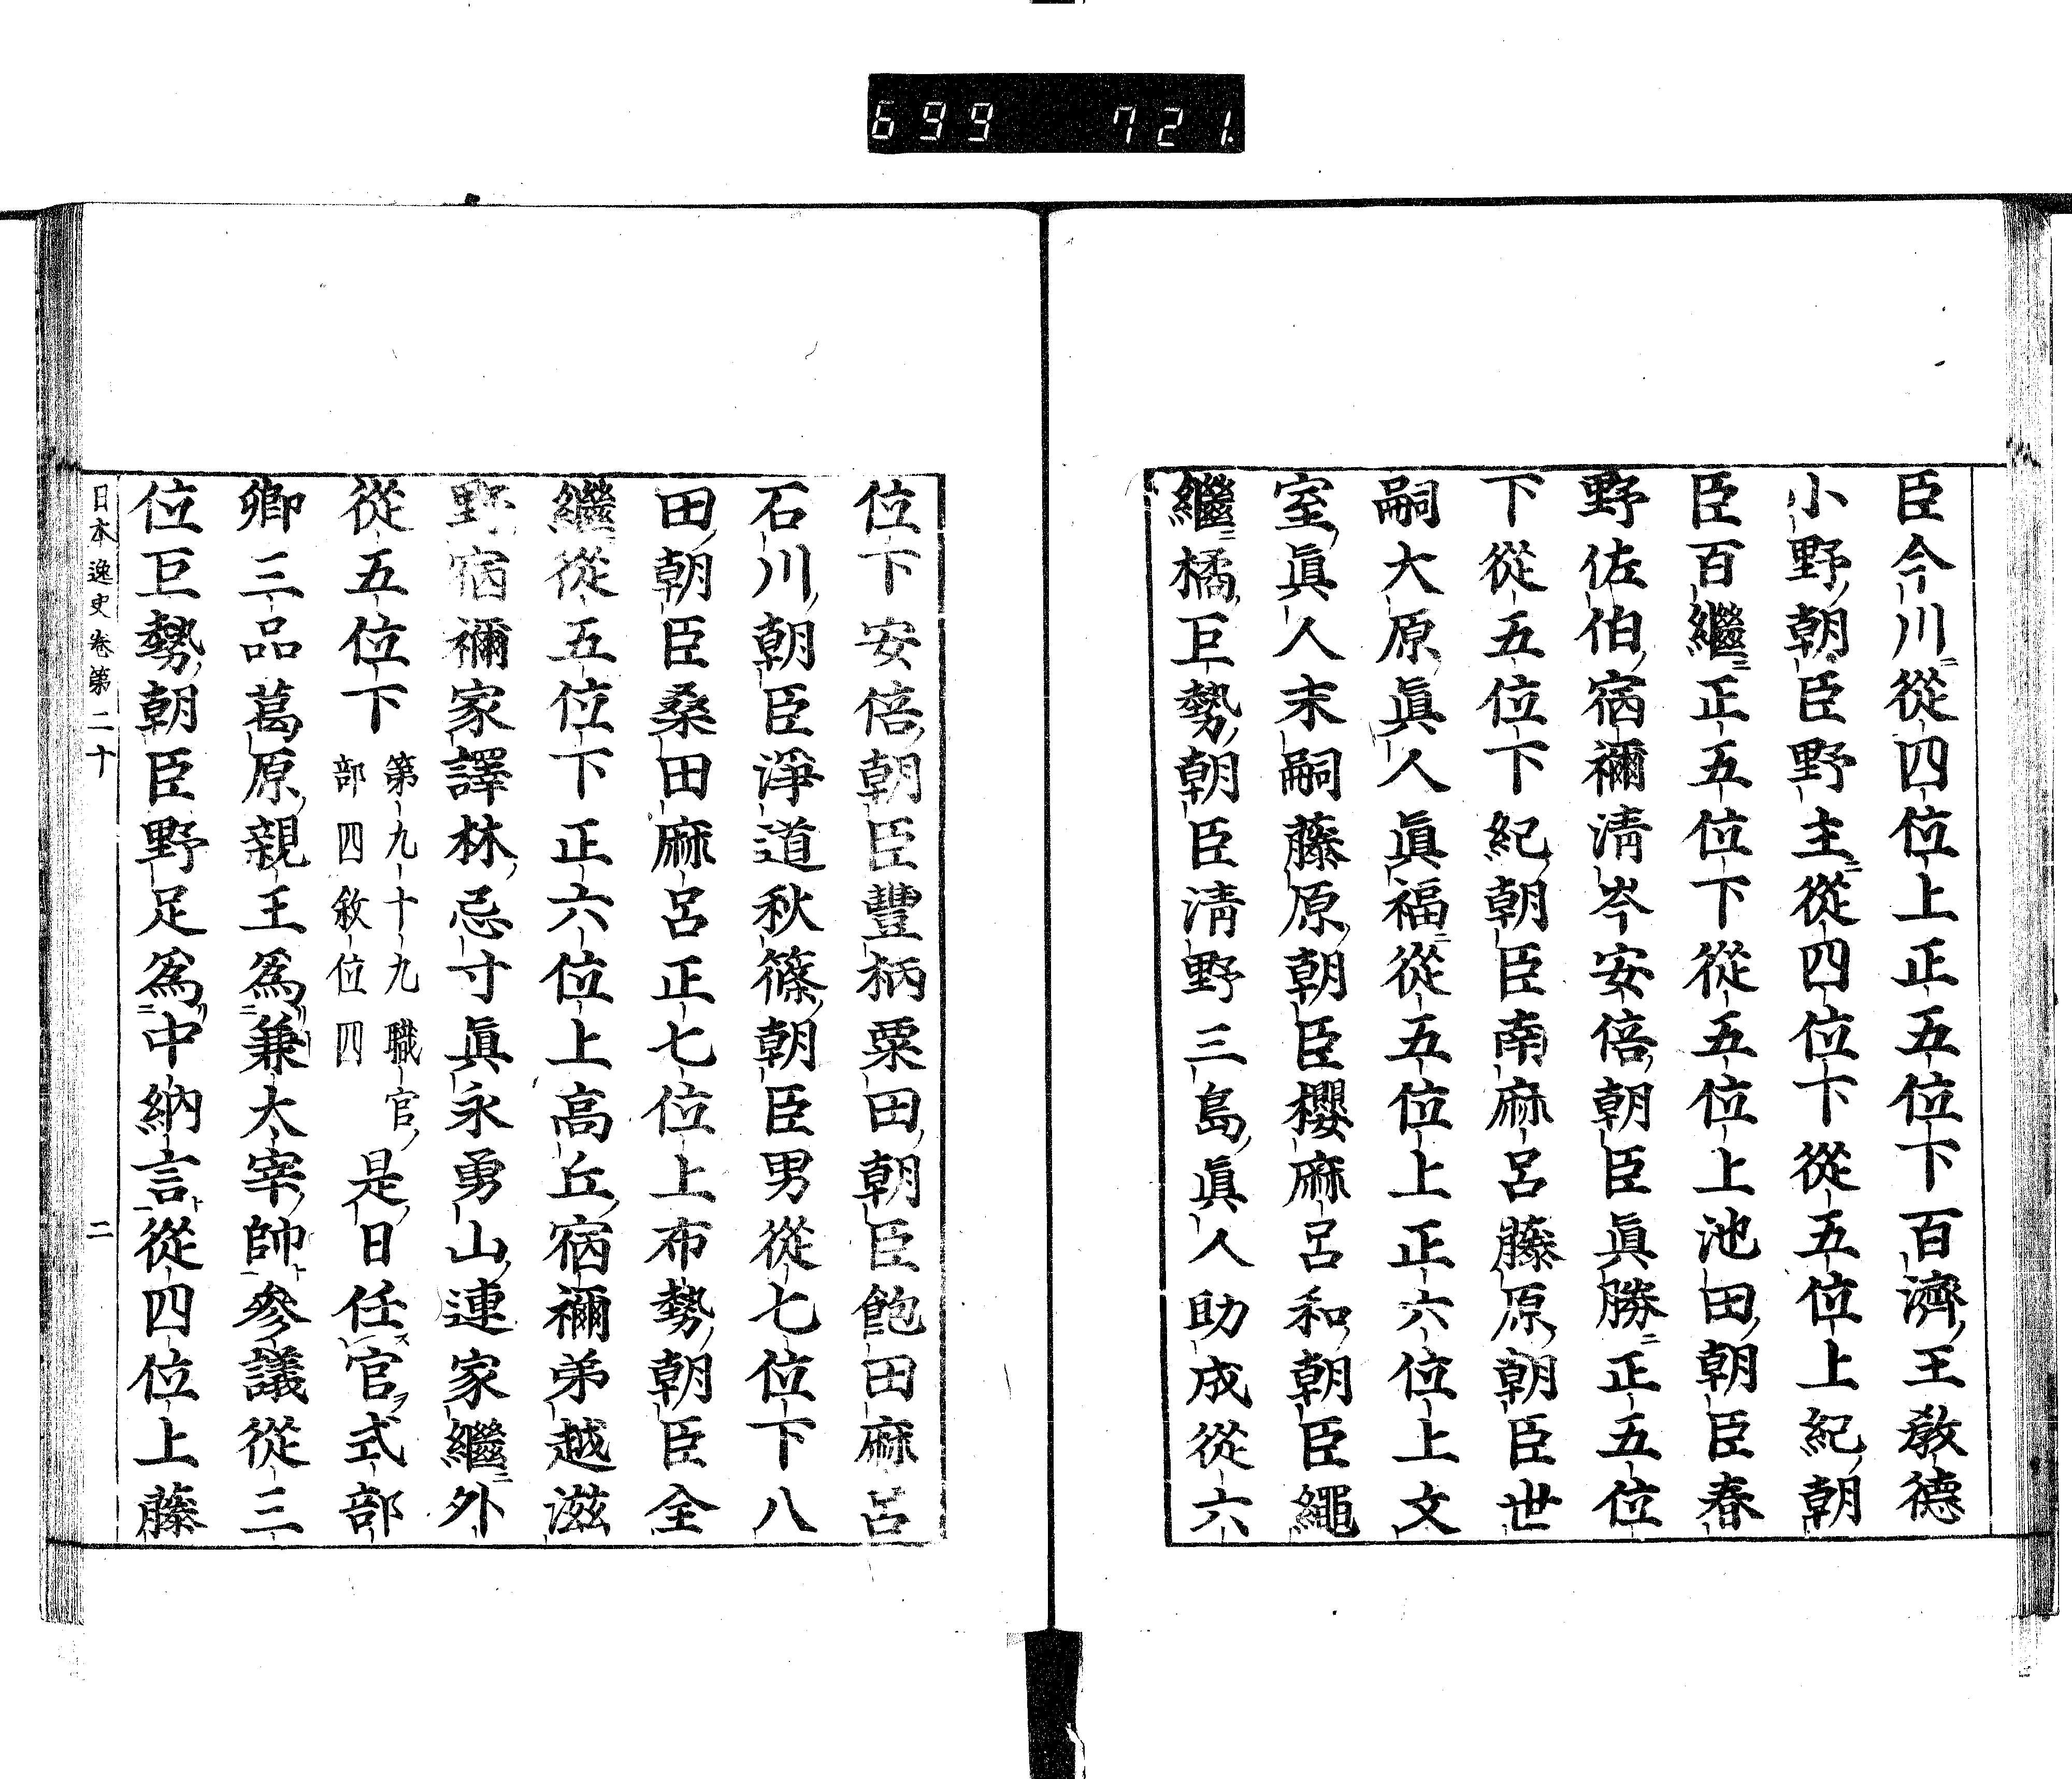 699 721.
臣今川從四位上正五位下百濟王教德
小野朝臣野主從四位下從五位上紀朝
臣百繼正五位下從五位上池田朝臣春
野佐伯宿禰淸岑安倍朝臣眞勝正五位
下從五位下紀朝臣南麻呂藤原朝臣世
嗣大原眞人眞福從五位上正六位上文
室眞人末嗣藤原朝臣櫻麻呂和朝臣繩
繼橘巨勢朝臣淸野三島眞人助成從六
位下安倍朝臣豐柄粟田朝臣飽田麻呂
石川朝臣淨道秋篠朝臣男從七位下八
田朝臣桑田麻呂正七位上布勢朝臣全
繼從五位下正六位上高丘宿禰弟越滋
野宿禰家譯林忌寸眞永勇山連家繼外
從五位下 第九十九職官
部四敘位四 是日任官式部
卿三品葛原親王爲兼太宰帥參議從三
位巨勢朝臣野足爲中納言從四位上藤
日本逸史卷第二十 二